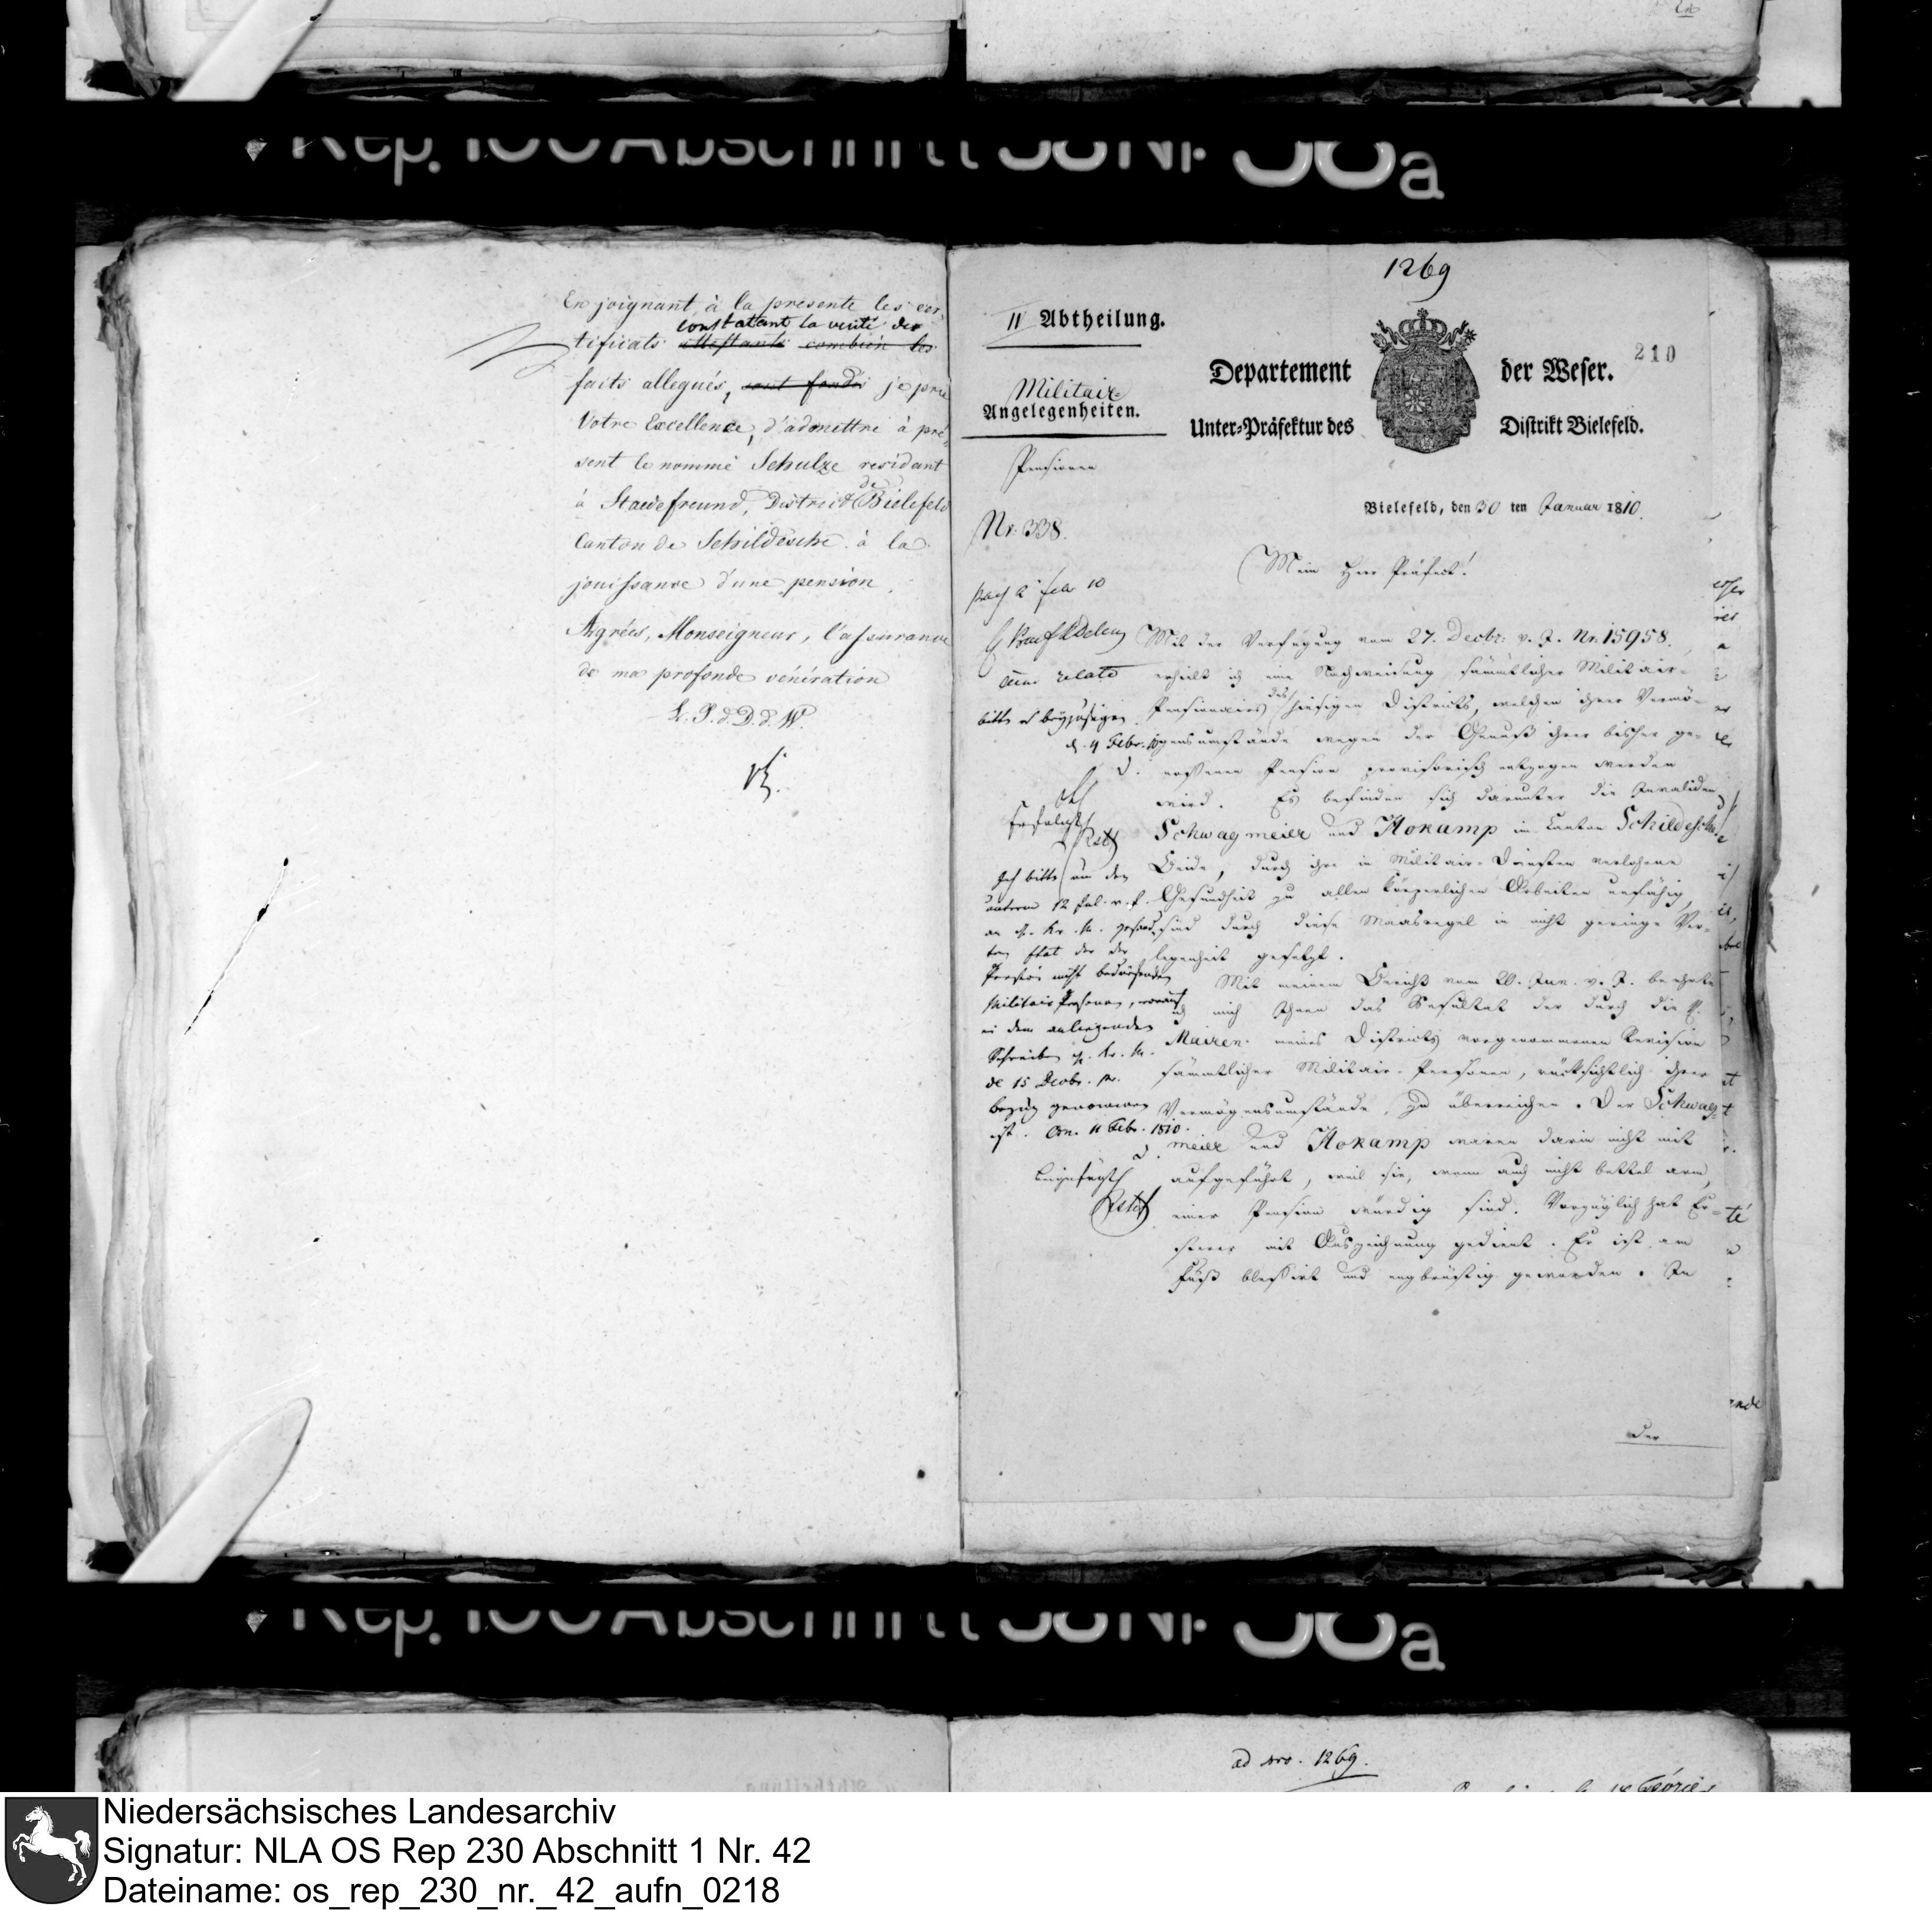 Rep. 100 Abschnitt 58 Nr 38a
En joignant à la présente les cer-
constatant la verité des
tificats attestants combien les
faits allegués, sont fondés je prie
Votre Excellence, d'admettre à pré-
sent le nommé Schulze residant
à Staedefreund, District de Bielefeld
Canton de Schildesche à la
jouissance d'une pension.
Agrées, Monseigneur, l'assurance
de ma profonde vénération
L. P. d. D. d. W.
1269
210
II Abtheilung.
Militair-
Angelegenheiten.
Departement der Weser.
Unter-Präfektur des Distrikt Bielefeld.
Pensionen
Nr. 338.
Bielefeld, den 30 ten Januar 1810.
Mein Herr Präfect!
Mit der Verfügung vom 27. Decbr. v. J. Nr. 15958.
erhielt ich eine Nachweisung sämmtlicher Militair-
Pensionairs des hiesigen Districts, welchen ihrer Vermö-
gensumstände wegen der Genuß ihrer bisher ge-
nossenen Pension provisorisch entzogen werden
wird. Es befinden sich darunter die Invaliden
Schwagmeier und Hokamp im Canton Schildesche.
Beide, durch ihre in Militair-Diensten verlohrne
Gesundheit zu allen körperlichen Arbeiten unfähig,
sind durch diese Maasregel in nicht geringe Ver-
legenheit gesetzt.
Mit meinem Bericht vom 20. Jun. v. J. beehrte
ich mich Ihnen das Resultat der durch die H.
Mairen meines Districts vorgenommenen Revision
sämmtlicher Militair-Personen, rücksichtlich ihrer
Vermögensumstände, zu überreichen. Der Schwag-
meier und Hokamp waren darin nicht mit
aufgeführt, weil sie, wenn auch nicht bettel arm,
einer Pension würdig sind. Vorzüglich hat Er-
sterer mit Auszeichnung gedient. Er ist am
Fuß blessirt und engbrüstig geworden. In
der
cum relato
bitte es beyzufügen
d. 4 Febr. 10
Ich bitte um den
unterm 12 Jul. v. J.
an d. Kr. M. gesand-
ten Etat der der
Pension nicht bedürfenden
Militair Personen, worauf
in dem anliegenden
Schreiben d. Kr. M.
de 15 Decbr. pr.
bezug genommen
ist. Osn. 11 Febr. 1810.
beigefügt
Rep. 100 Abschnitt 58 Nr 38a
ad nro. 1269.
Niedersächsisches Landesarchiv
Signatur: NLA OS Rep 230 Abschnitt 1 Nr. 42
Dateiname: os_rep_230_nr._42_aufn_0218